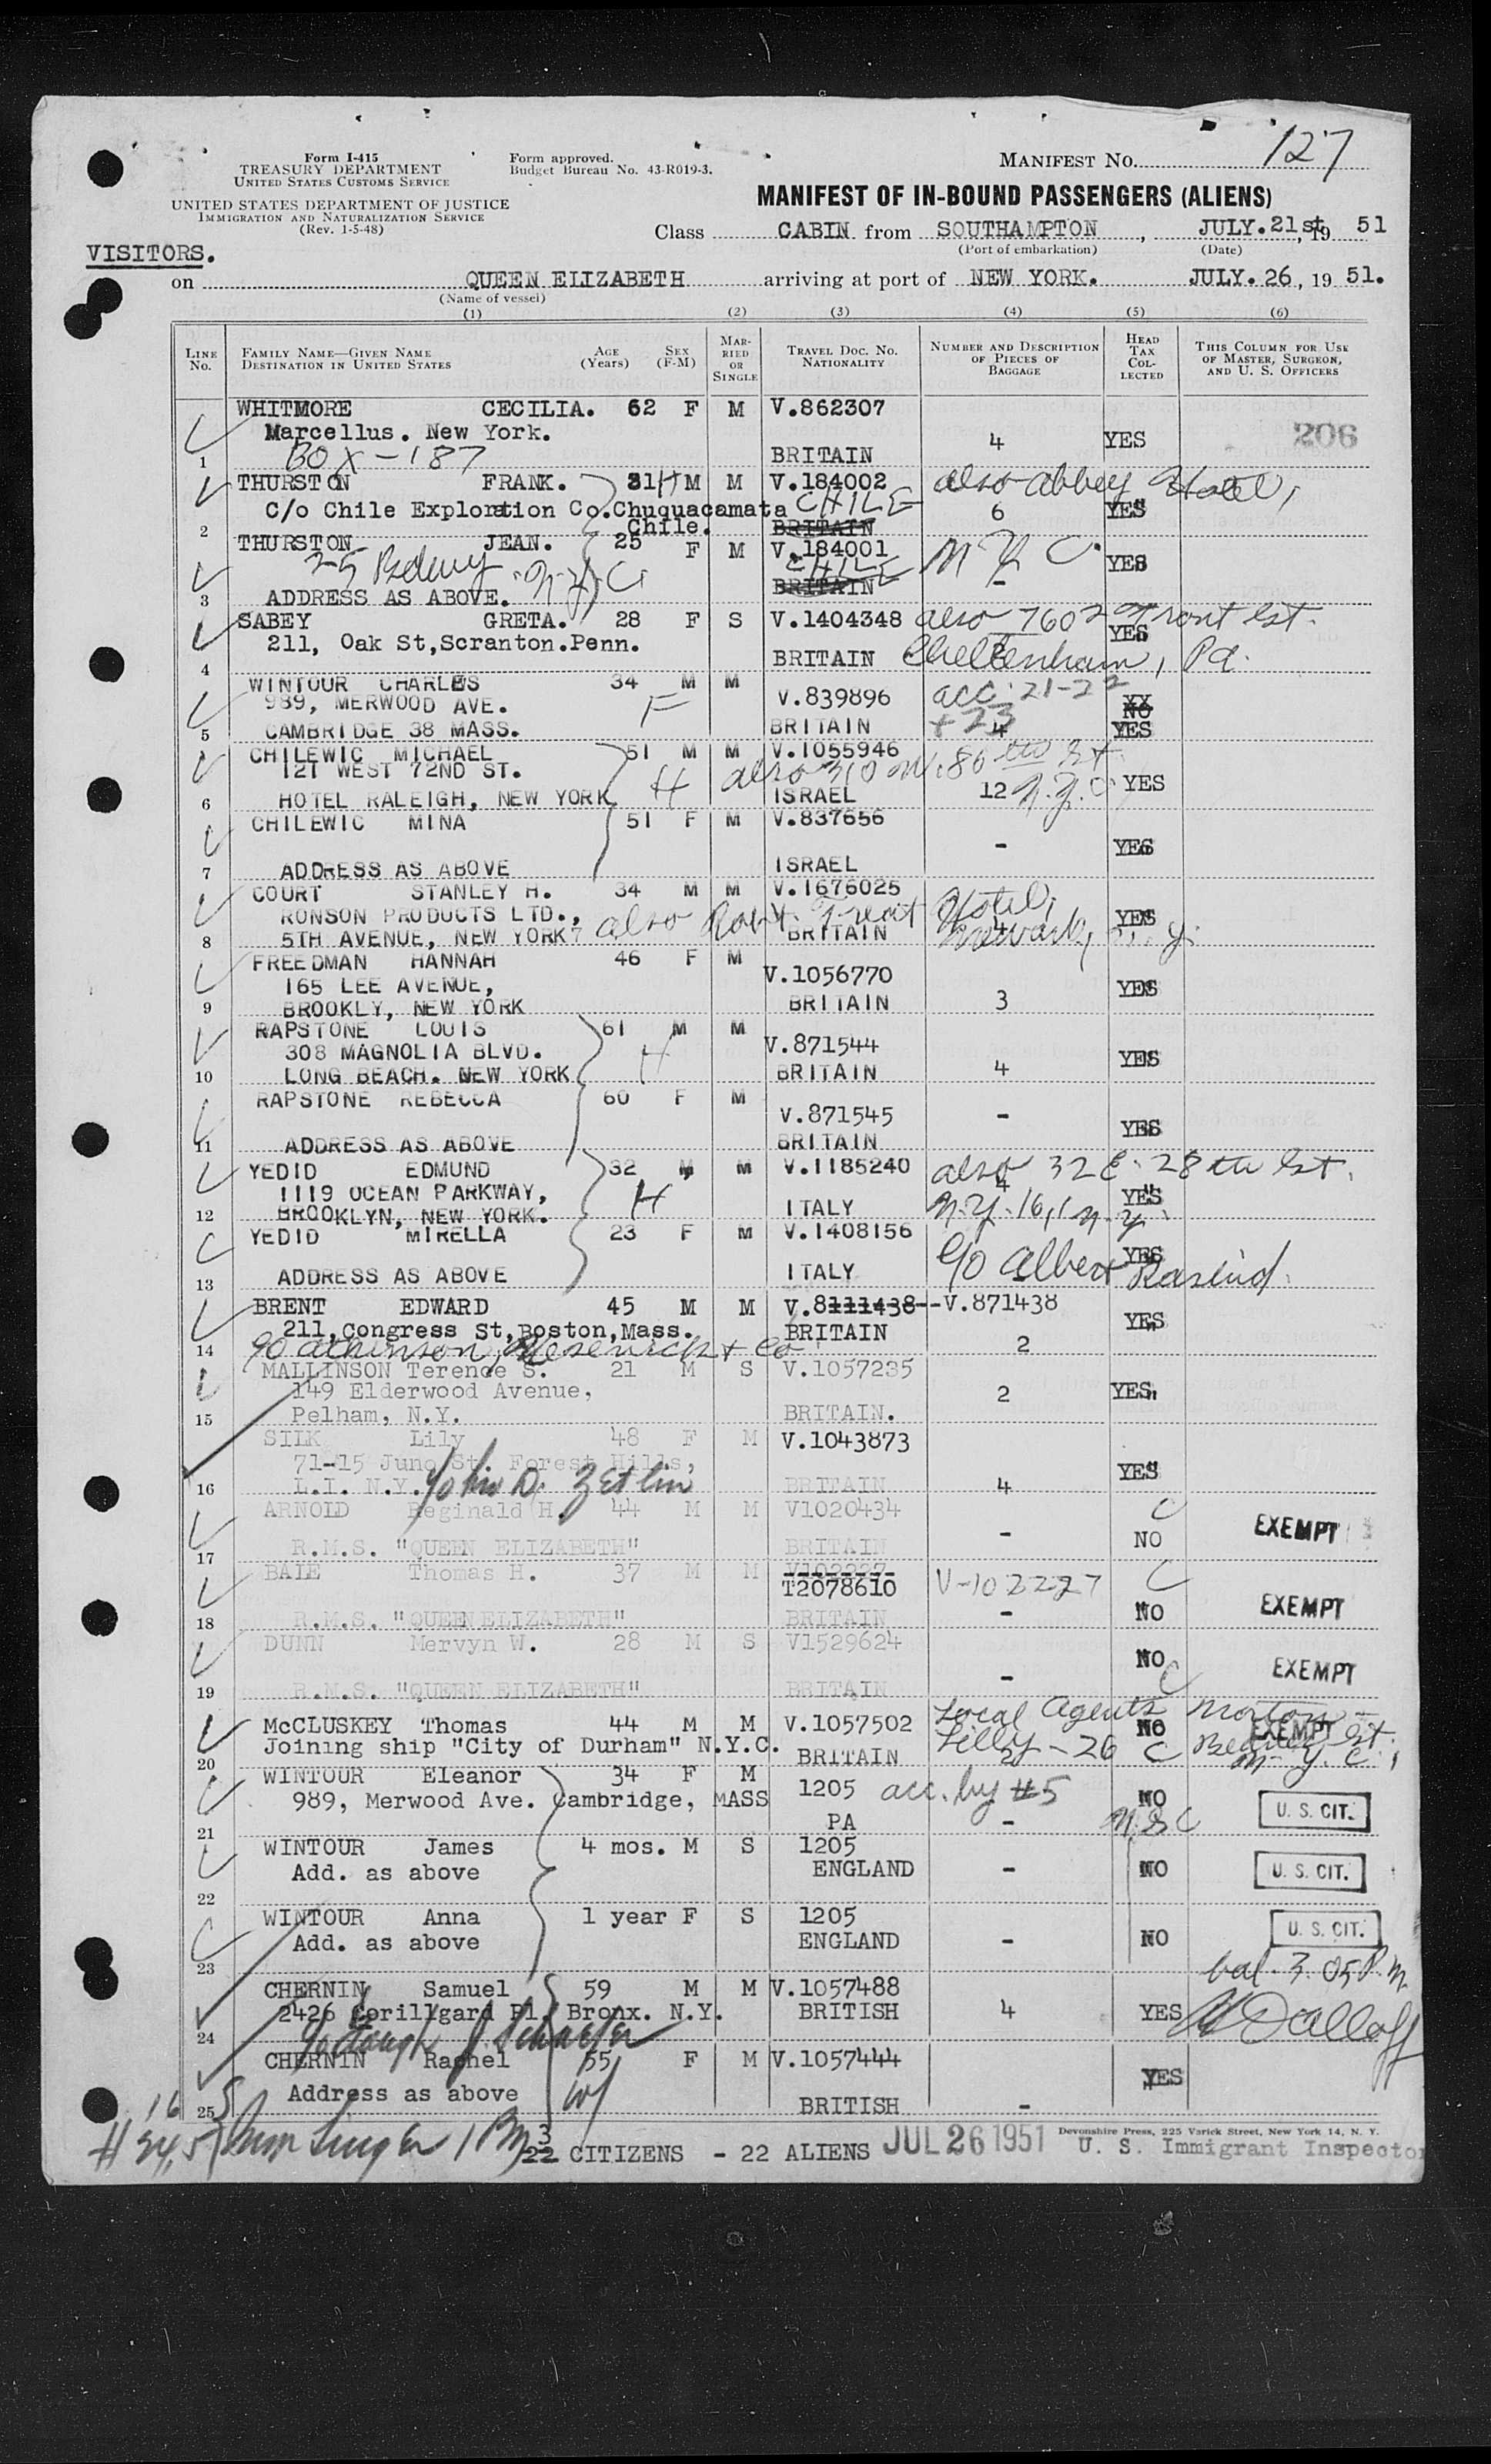 127
Form I-415
TREASURY DEPARTMENT
UNITED STATES CUSTOMS SERVICE
Form approved.
Budget Bureau No. 43-R019-3.
MANIFEST NO.
UNITED STATES DEPARTMENT OF JUSTICE
IMMIGRATION AND NATURALIZATION SERVICE
(Rev. 1-5-48)
MANIFEST OF IN-BOUND PASSENGERS (ALIENS)
VISITORS.
Class CABIN from SOUTHAMPTON , JULY.21st, 19 51
(Port of embarkation) (Date)
on QUEEN ELIZABETH arriving at port of NEW YORK. JULY.26, 19 51.
(Name of vessel)
(1) (2) (3) (4) (5) (6)
LINE NO. FAMILY NAME—GIVEN NAME DESTINATION IN UNITED STATES AGE (Years) SEX (F-M) MARRIED OR SINGLE TRAVEL DOC. NO. NATIONALITY NUMBER AND DESCRIPTION OF PIECES OF BAGGAGE HEAD TAX COLLECTED THIS COLUMN FOR USE OF MASTER, SURGEON, AND U. S. OFFICERS
WHITMORE CECILIA. 62 F M V.862307
Marcellus. New York. 4 YES 206
1 BOX-187 BRITAIN
THURSTON FRANK. 31 H M M V.184002 also Abbey Hotel,
C/o Chile Exploration Co.Chuquacamata CHILE 6 YES
2 Chile. BRITAIN
THURSTON JEAN. 25 F M V.184001 N Y C.
25 Bdwy N.Y.C. CHILE YES
3 ADDRESS AS ABOVE. BRITAIN -
SABEY GRETA. 28 F S V.1404348 also 7602 Front St.
211, Oak St,Scranton.Penn. YES
4 BRITAIN Cheltenham, Pa.
WINTOUR CHARLES 34 M M
989, MERWOOD AVE. F V.839896 acc. 21-22 XX NO
5 CAMBRIDGE 38 MASS. BRITAIN +23 4 YES
CHILEWIC MICHAEL 51 M M V.1055946
121 WEST 72ND ST. H also 310 W. 86th St
6 HOTEL RALEIGH, NEW YORK ISRAEL 12 N.Y.C YES
CHILEWIC MINA 51 F M V.837656
- YES
7 ADDRESS AS ABOVE ISRAEL
COURT STANLEY H. 34 M M V.1676025
RONSON PRODUCTS LTD., also Robt. Treat Hotel, YES
8 5TH AVENUE, NEW YORK BRITAIN 4 Newark, N.J.
FREEDMAN HANNAH 46 F M
165 LEE AVENUE, V.1056770 YES
9 BROOKLY, NEW YORK BRITAIN 3
RAPSTONE LOUIS 61 M M
308 MAGNOLIA BLVD. H V.871544 YES
10 LONG BEACH. NEW YORK BRITAIN 4
RAPSTONE REBECCA 60 F M
V.871545 - YES
11 ADDRESS AS ABOVE BRITAIN
YEDID EDMUND 32 M M V.1185240 also 32 E. 28th St.
1119 OCEAN PARKWAY, H 4 YES
12 BROOKLYN, NEW YORK. ITALY N.Y. 16, N.Y.
YEDID MIRELLA 23 F M V.1408156
c/o Albert YES
13 ADDRESS AS ABOVE ITALY -
BRENT EDWARD 45 M M V.8111438--V.871438
211,Congress St,Boston,Mass. BRITAIN YES
14 c/o Atkinson, & Co 2
MALLINSON Terence S. 21 M S V.1057235
149 Elderwood Avenue, 2 YES
15 Pelham, N.Y. BRITAIN.
SILK Lily 48 F M V.1043873
71-15 Juno St. Forest Hills, YES
16 L.I. N.Y. c/o D. Zetlin BRITAIN 4
ARNOLD Reginald H. 44 M M V1020434 C
- NO EXEMPT
17 R.M.S. "QUEEN ELIZABETH" BRITAIN
BALE Thomas H. 37 M M V102227
T2078610 V-102227 C
18 R.M.S. "QUEEN ELIZABETH" BRITAIN - NO EXEMPT
DUNN Mervyn W. 28 M S V1529624
NO C EXEMPT
19 R.M.S. "QUEEN ELIZABETH" BRITAIN -
McCLUSKEY Thomas 44 M M V.1057502 Local Agents Norton- NO EXEMPT
Joining ship "City of Durham" N.Y.C. Lilly-26 Beaver St.
20 BRITAIN 2 C N.Y.C.,
WINTOUR Eleanor 34 F M
989, Merwood Ave. Cambridge, MASS 1205 acc. by #5 NO U. S. CIT.
21 PA - N.S.C
WINTOUR James 4 mos. M S 1205
Add. as above ENGLAND - NO U. S. CIT.
22
WINTOUR Anna 1 year F S 1205 U. S. CIT.
Add. as above ENGLAND - NO
23
bal. 3.05 P.m.
CHERNIN Samuel 59 M M V.1057488
2426 Lorillgard Pl, Bronx. N.Y. BRITISH 4 YES
24 J. Schaefer
CHERNIN Rachel 55 F M V.1057444
W YES
Address as above
25 BRITISH -
16
3
22 CITIZENS - 22 ALIENS JUL 26 1951
Devonshire Press, 225 Varick Street, New York 14, N. Y.
U. S. Immigrant Inspector